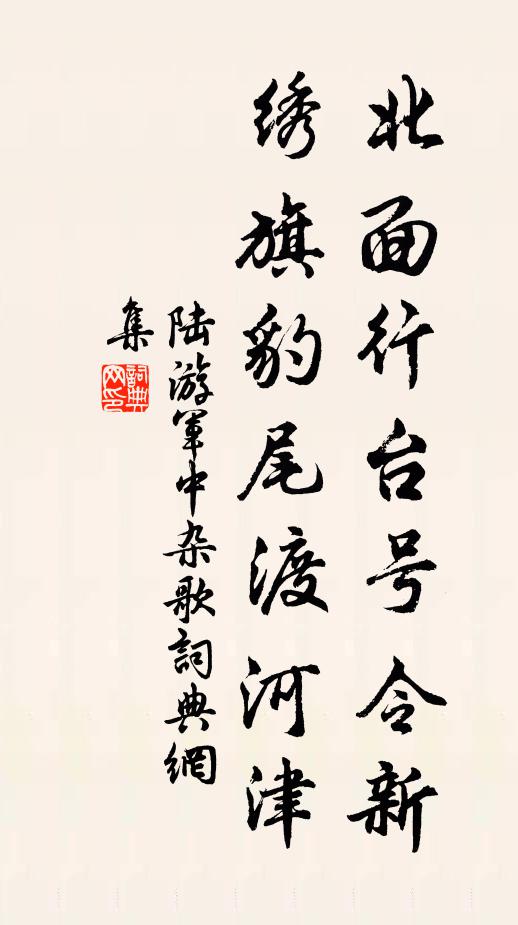 北面行台号令新
绣旗豹尾渡河津
陆游軍中杂歌詞典網
集
詞典网印